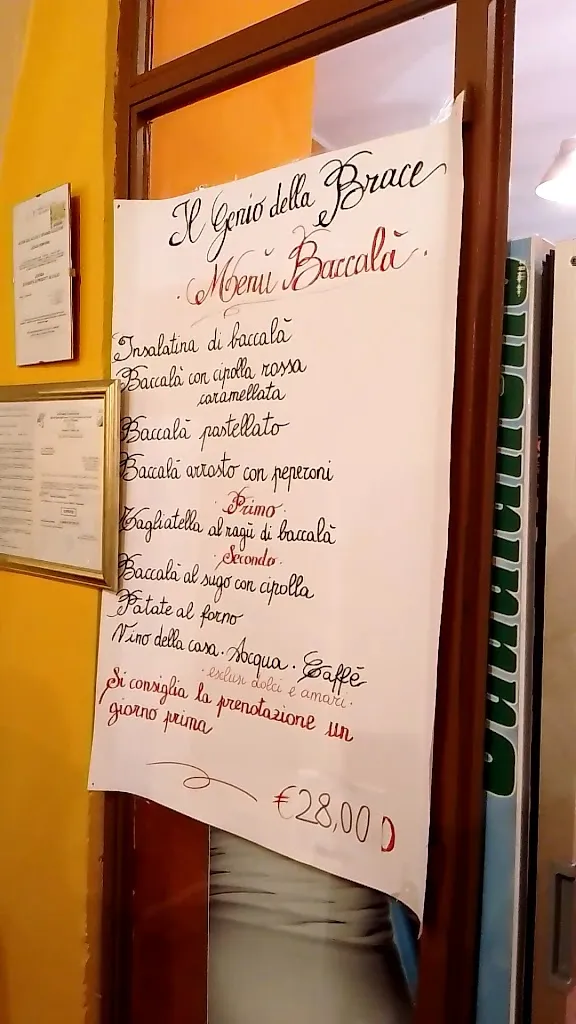 Il Genio della Brace
Menù Baccalà.
Insalatina di baccalà
Baccalà con cipolla rossa
caramellata
Baccalà pastellato
Baccalà arrosto con peperoni
Primo
Tagliatella al ragù di baccalà
Secondo
Baccalà al sugo con cipolla
Patate al forno
Vino della casa. Acqua. Caffè
esclusi dolci e amari.
Si consiglia la prenotazione un
giorno prima
€28,00